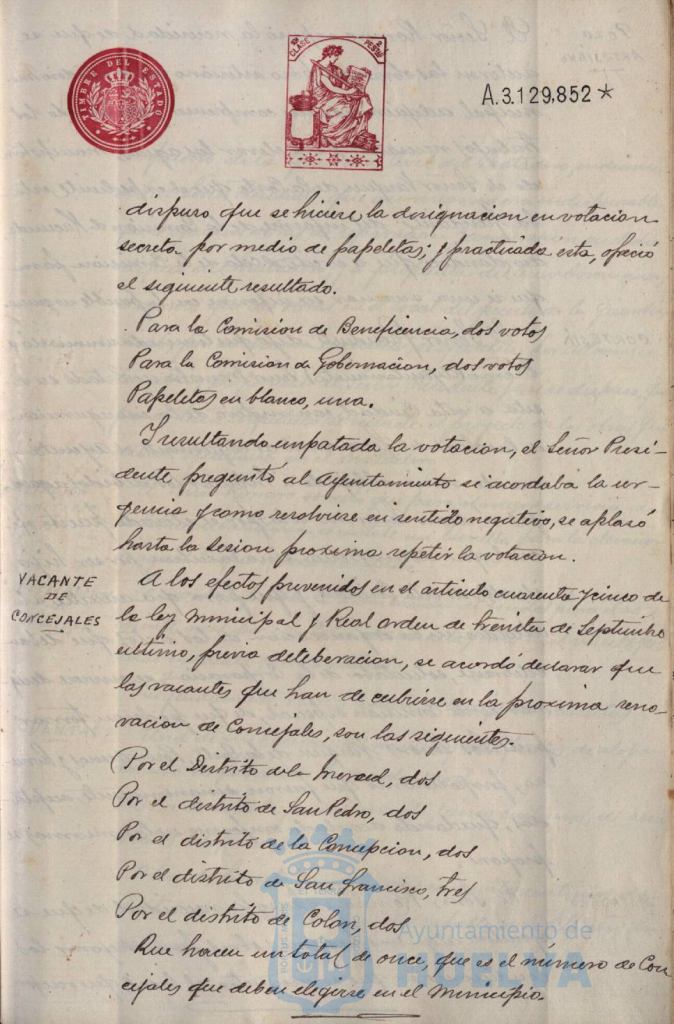 TIMBRE DEL ESTADO
10ª CLASE
2 PESETAS
A.3.129,852*
dispuso que se hiciese la designacion en votacion
secreta por medio de papeletas; y practicada ésta, ofreció
el siguiente resultado.
Para la Comisión de Beneficencia, dos votos
Para la Comision de Gobernacion, dos votos
Papeletas en blanco, una.
Y resultando empatada la votacion, el Señor Presi-
dente preguntó al Ayuntamiento si acordaba la ur-
gencia y como resolviese en sentido negativo, se aplazó
hasta la sesion proxima repetir la votacion.
VACANTE
DE
CONCEJALES
A los efectos prevenidos en el articulo cuarenta y cinco de
la ley Municipal y Real orden de treinta de Septiembre
ultimo, previa deliberacion, se acordó declarar que
las vacantes que han de cubrirse en la proxima reno-
vacion de Concejales, son las siguientes.
Por el Distrito de la Merced, dos
Por el distrito de San Pedro, dos
Por el distrito de la Concepcion, dos
Por el distrito de San Francisco, tres
Por el distrito de Colon, dos
Que hacen un total de once, que es el número de Con
cejales que deben elegirse en el Municipio.
Ayuntamiento de
HUELVA